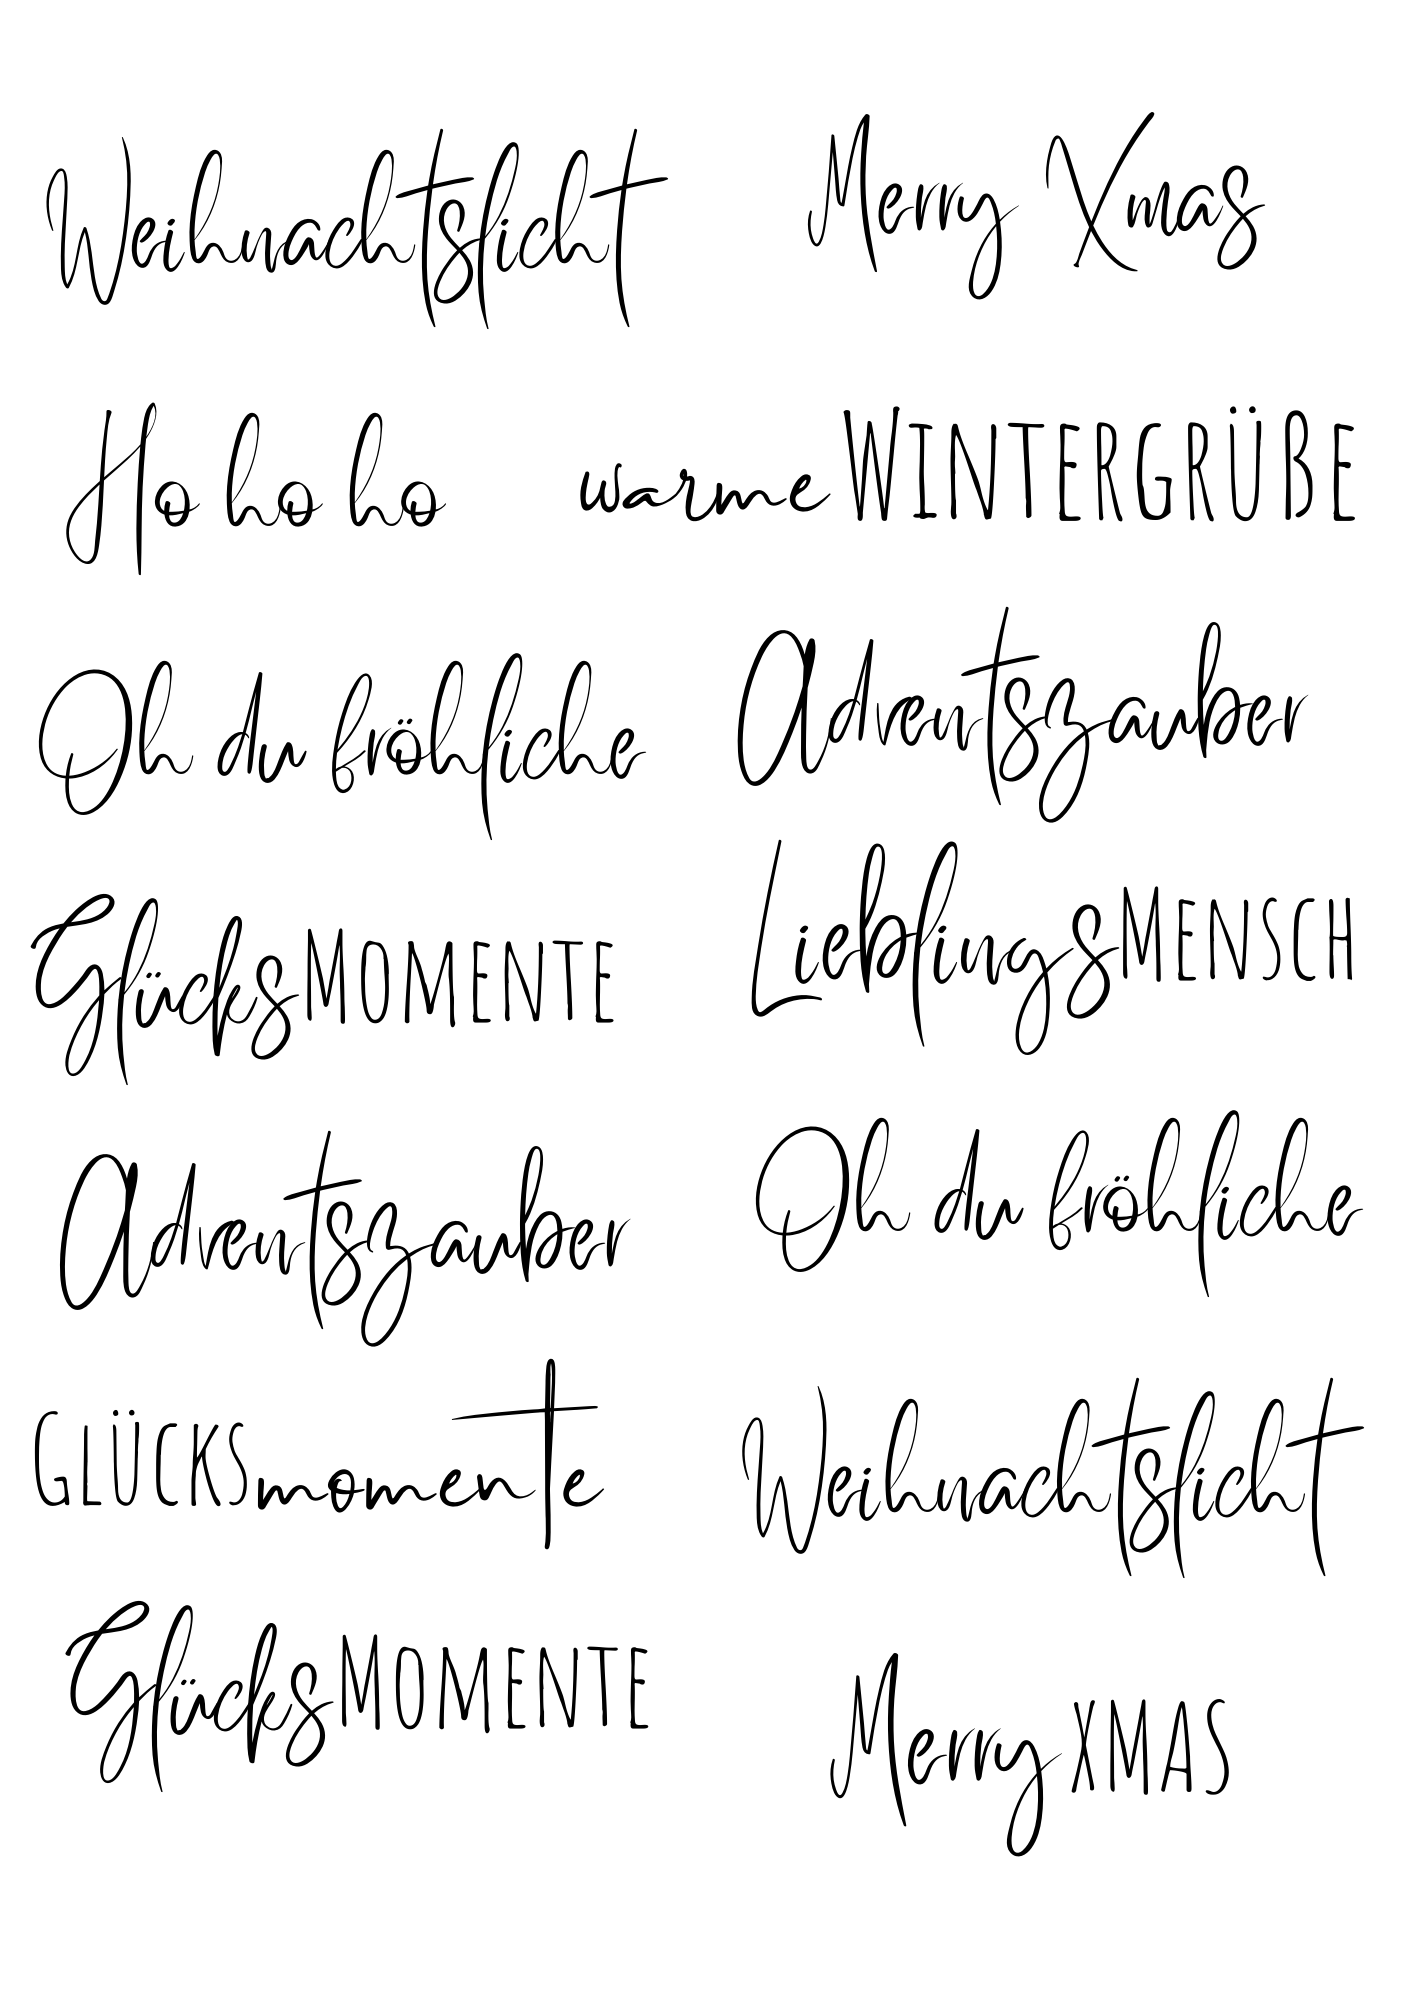 Weihnachtslicht
Merry Xmas
Ho ho ho
warme WINTERGRÜßE
Oh du fröhliche
Adventszauber
GlücksMOMENTE
LieblingsMENSCH
Adventszauber
Oh du fröhliche
GLÜCKSmomente
Weihnachtslicht
GlücksMOMENTE
Merry XMAS